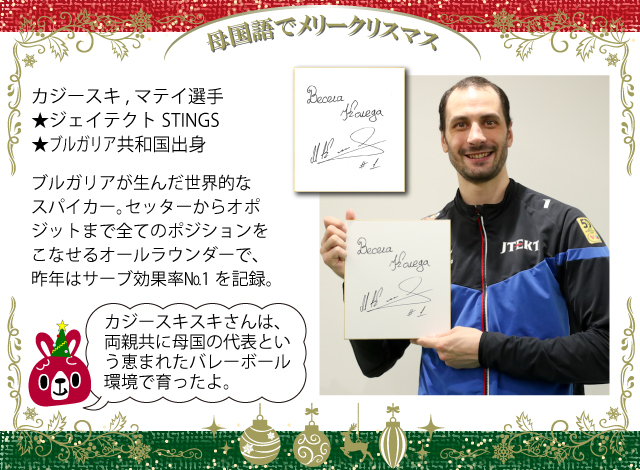 母国語でメリークリスマス
カジースキ , マテイ選手
★ジェイテクト STINGS
★ブルガリア共和国出身
ブルガリアが生んだ世界的な
スパイカー。セッターからオポ
ジットまで全てのポジションを
こなせるオールラウンダーで、
昨年はサーブ効果率№1 を記録。
カジースキスキさんは、
両親共に母国の代表とい
う恵まれたバレーボール
環境で育ったよ。
Весела
Коледа
#1
JTEKT
Весела
Коледа
#1